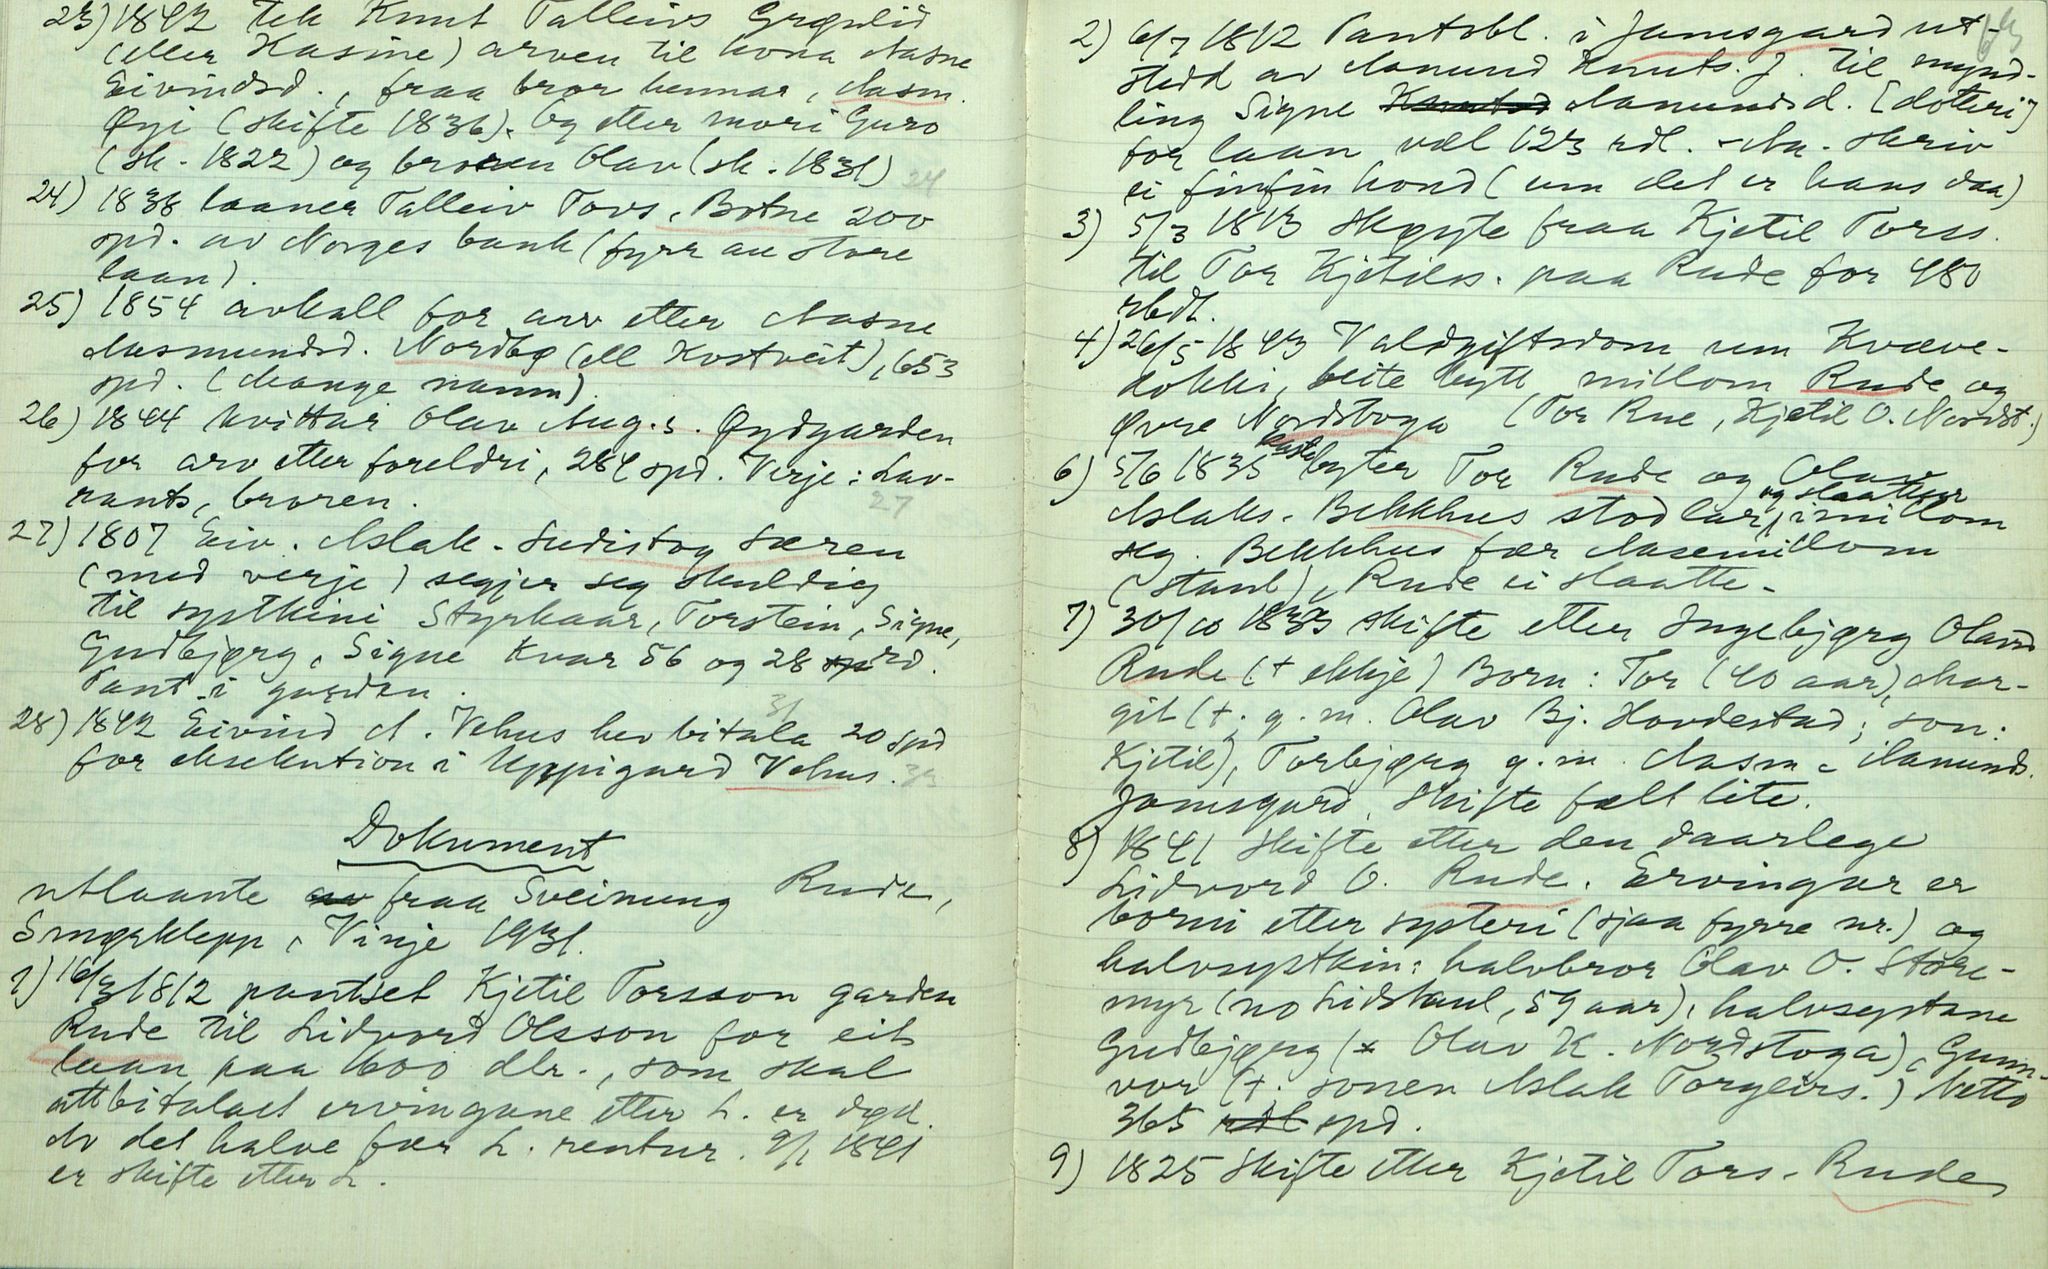 23) 1842 tek Knut Talleivs Grøvlid
(eller Kasine) arven til kona Aasne
Eivindsd., fraa bror hennar, Aasm.
Øyi (skifte 1836). Og etter mori Guro
(sk. 1822) og broren Olav (sk. 1831) 24
24) 1838 laaner Talleiv Tovs. Botne 200
spd. av Norges bank (fyrr au store
laan).
25) 1854 avkall for arv etter Aasne
Aasmundsd. Nordbø (ell Kostveit), 653
spd. (Mange namn)
26) 1844 kvittar Olav Aug.s. Øydgarden
for arv etter foreldri, 284 spd. Verje: Lav-
rants, broren. 27
27) 1807 Eiv. Aslak. Sudistog Særen
(med verje) segjer seg skuldig
til syskini Styrkaar, Torstein, Signe,
Gudbjørg, Signe kvar 56 og 28 rd.
Pant i garden.
31
28) 1842 Eivind A. Vehus hev bitala 20 spd
for eksekution i Uppigard Vehus.
Dokument
utlaante av fraa Sveinung Rude,
Smørklepp, Vinje 1931.
1) 16/3 1812 pantset Kjetil Torsson garden
Rude til Lidvord Olsson for eit
laan paa 1600 dlr., som skal
attbitalast ervingane etter L. er død.
Av det halve fær L. rentur. 9/1 1841
er skifte etter L.
2) 6/7 1812 Pantobl. i Jamsgard ut-
stedd av Aamund Knuts. J. til mynd-
ling Signe Knutsd Aamundsd. [dotteri]
for laan vel 123 rdl. - Aa. skriv
ei finfin hond (um det er hans daa)
3) 5/3 1813 Skøyte fraa Kjetil Torss.
til Tor Kjetilss. paa Rude for 480
rbdl.
4) 26/5 1843 Valdgiftsdom um Kvæve-
dokki, beite bytt millom Rude og
Øvre Nordstoga (Tor Rue, Kjetil O. Nordst.)
6) 5/6 1835 byter Tor Rude og Olav
Aslaks. Bekkhus stodlar og slaattur imillom
seg. Bekkhus fær Aasemillom
(staul), Rude ei slaatte.
7) 30/10 1833 skifte etter Ingebjørg Olavsd
Rude (+ ekkje) Born: Tor (40 aar), Mar-
git (+. g. m. Olav Bj. Hovdestad; son:
Kjetil), Torbjørg g. m. Aasm. Aamunds.
Jamsgard. Skifte fælt lite.
8) 1841 Skifte etter den daarlege
Lidvord O. Rude. Ervingar er
borni etter systeri (sjaa fyrre nr.) og
halvsyskin: halvbror Olav O. Støre-
myr (no Lidstaul, 59 aar), halvsystane
Gudbjørg (x Olav K. Nordstoga), Gunn-
vor (+. sonen Aslak Torgeirs.) Netto
365 rdl spd.
9) 1825 Skifte etter Kjetil Tors. Rude